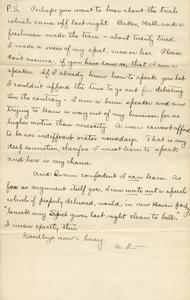 P.S. Perhaps you want to hear about the trials
which came off last night. Baker, Hall, and a
freshman made the team - about twenty tried.
I made a mess of my spiel, more or less. Please
don't assume, if you have done so, that I am a
speaker. If I already knew how to speak you bet
I couldn't afford the time to go out for debating.
On the contrary - I am a bum speaker and am
trying to learn my out of my business, for no
higher motive than necessity. A man cannot afford
to be an indifferent orator nowadays. That is my
deep conviction, therefore I must learn to speak
and here is my chance.
And I am confident I can learn. As
far as argument itself goes, I can write out a speech
which if properly delivered, would, in New Haven
knock any spiel given last night clean to hell.
I mean exactly this.
Goodbye now - busy.